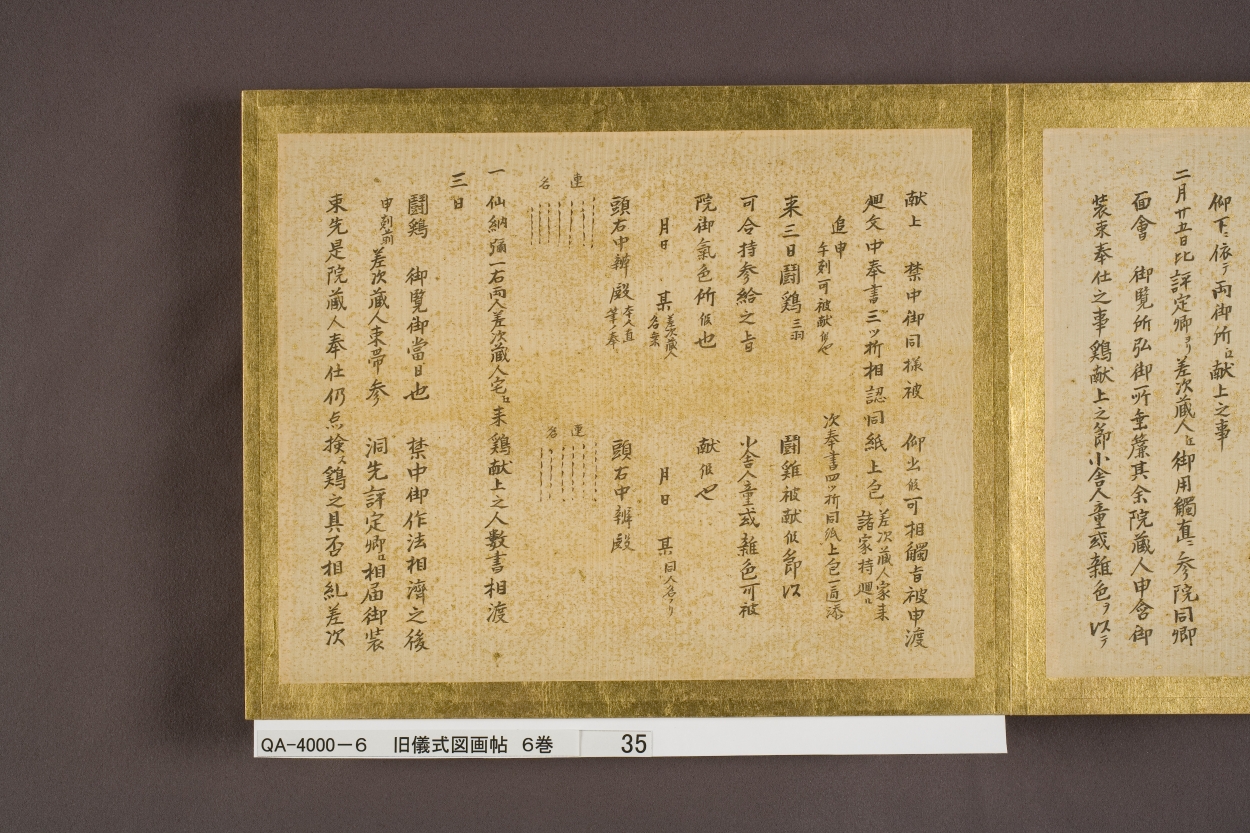 仰下ニ依テ両御所ニ献上之事
二月廿五日比評定卿ヨリ差次蔵人江御用觸直ニ参院同卿
面會 御覧所弘御所垂簾其余院蔵人申含御
装束奉仕之事鶏献上之節小舎人童或雑色ヲ以テ
献上 禁中御同様被 仰出候可相觸旨被申渡
廻文中奉書三ツ折相認同紙上包 差次蔵人家来
諸家持廻ニ
追申
午剋可被献候也
次奉書四ツ折同紙上包一通添
来三日闘鶏三羽
可令持参給之旨
院御氣色所候也
月日 某 差次蔵人
名乗
頭右中辨殿 本人直
筆ノ奉
連
名
闘雞被献候節以
小舎人童或雑色可被
献候也
月日 某 同人名ノリ
頭右中辨殿
連
名
一 仙納彌一右両人差次蔵人宅江来鶏献上之人數書相渡
三日
闘鶏 御覧御當日也 禁中御作法相濟之後
申剋前 差次蔵人束帯参 洞先評定卿江相届御装
束先是院蔵人奉仕仍点撿ス鶏之具否相糺差次
QA-4000-6 旧儀式図画帖 6巻 35